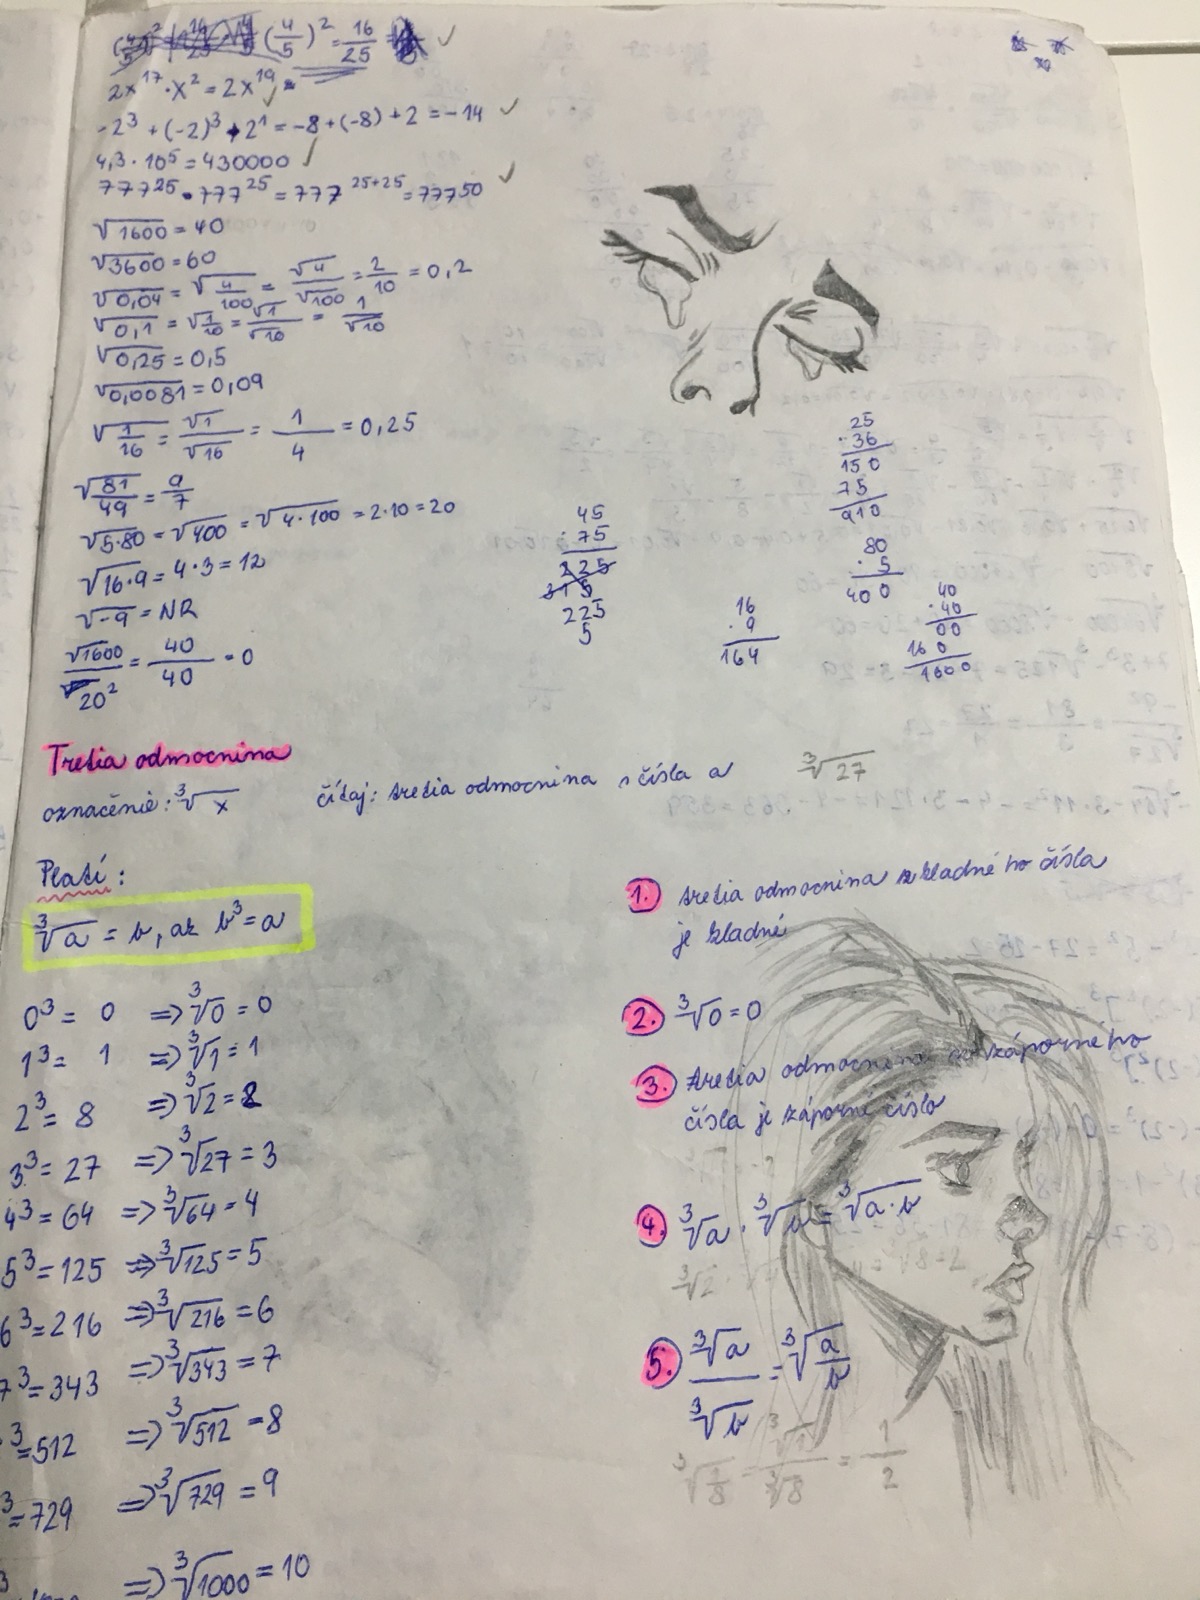 (4/5)² = 16/25
2x¹⁷ · x² = 2x¹⁹
-2³ + (-2)³ + 2¹ = -8 + (-8) + 2 = -14
4,3 · 10⁵ = 430000
777²⁵ · 777²⁵ = 777²⁵⁺²⁵ = 777⁵⁰
√1600 = 40
√3600 = 60
√0,04 = √(4/100) = √4/√100 = 2/10 = 0,2
√0,1 = √(1/10) = √1/√10 = 1/√10
√0,25 = 0,5
√0,0081 = 0,09
√(1/16) = √1/√16 = 1/4 = 0,25
√(81/49) = 9/7
√5·80 = √400 = √4·100 = 2·10 = 20
√16·9 = 4·3 = 12
√-9 = NR
√1600/20² = 40/40 = 0
25
·36
150
75
910
45
·75
225
315
225
5
80
·5
400
16
·9
164
40
·40
00
160
1600
Tretia odmocnina
označenie: ³√x čítaj: tretia odmocnina z čísla a ³√27
Platí:
³√a = b, ak b³ = a
0³ = 0 => ³√0 = 0
1³ = 1 => ³√1 = 1
2³ = 8 => ³√2 = 2
3³ = 27 => ³√27 = 3
4³ = 64 => ³√64 = 4
5³ = 125 => ³√125 = 5
6³ = 216 => ³√216 = 6
7³ = 343 => ³√343 = 7
³ = 512 => ³√512 = 8
³ = 729 => ³√729 = 9
³ => ³√1000 = 10
1. tretia odmocnina z kladného čísla
je kladné
2. ³√0 = 0
3. tretia odmocnina zo záporného
čísla je záporné číslo
4. ³√a · ³√b = ³√a·b
³√2 ·
5. ³√a/³√b = ³√(a/b)
³√(1/8) = ³√1/³√8 = 1/2